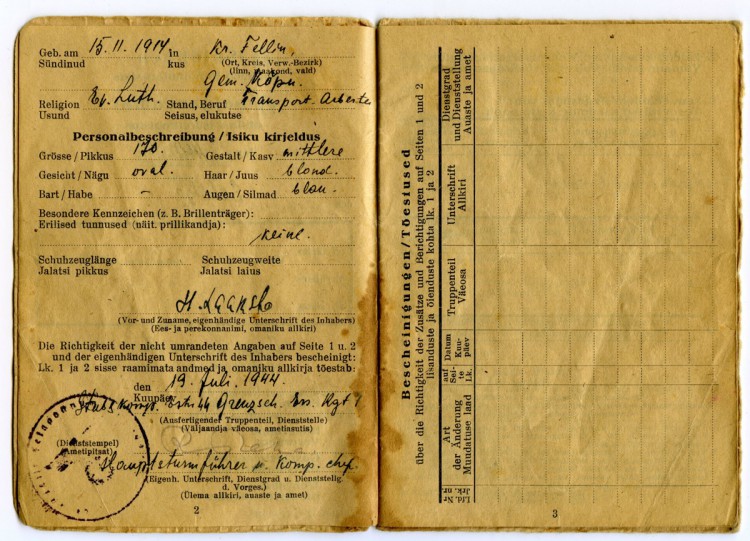 Geb. am 15. 11. 1914 in Kr. Fellin,
Sündinud kus (Ort, Kreis, Verw.-Bezirk)
(linn, maakond, vald)
Gem. Köpu.
Religion Ev. Luth. Stand, Beruf Transport. Arbeiter
Usund Seisus, elukutse
Personalbeschreibung / Isiku kirjeldus
Grösse / Pikkus 170. Gestalt / Kasv mittlere
Gesicht / Nägu oval. Haar / Juus blond.
Bart / Habe - Augen / Silmad blau.
Besondere Kennzeichen (z. B. Brillenträger):
Erilised tunnused (näit. prillikandja):
keine.
Schuhzeuglänge Schuhzeugweite
Jalatsi pikkus Jalatsi laius
(Vor- und Zuname, eigenhändige Unterschrift des Inhabers)
(Ees- ja perekonnanimi, omaniku allkiri)
Die Richtigkeit der nicht umrandeten Angaben auf Seite 1 u. 2
und der eigenhändigen Unterschrift des Inhabers bescheinigt:
Lk. 1 ja 2 sisse raamimata andmed ja omaniku allkirja tõestab:
den 19. Juli. 1944.
Kuupäev
Stabskomp. Estn. SS Grenzsch. Ers. Rgt 1
(Ausfertigender Truppenteil, Dienststelle)
(Väljaandja väeosa, ametiasutis)
(Dienststempel)
(Ametipitsat)
Hauptsturmführer u. Komp. chef.
(Eigenh. Unterschrift, Dienstgrad u. Dienststellg.
d. Vorges.)
(Ülema allkiri, auaste ja amet)
2
Bescheinigungen / Tõestused
über die Richtigkeit der Zusätze und Berichtigungen auf Seiten 1 und 2
lisanduste ja õienduste kohta lk. 1 ja 2
Lfd. Nr
Jrk. nr.
Art
der Änderung
Muudatuse laad
auf
Sei-
te
Lk.
Datum
Kuu-
päev
Truppenteil
Väeosa
Unterschrift
Allkiri
Dienstgrad
und Dienststellung
Auaste ja amet
3